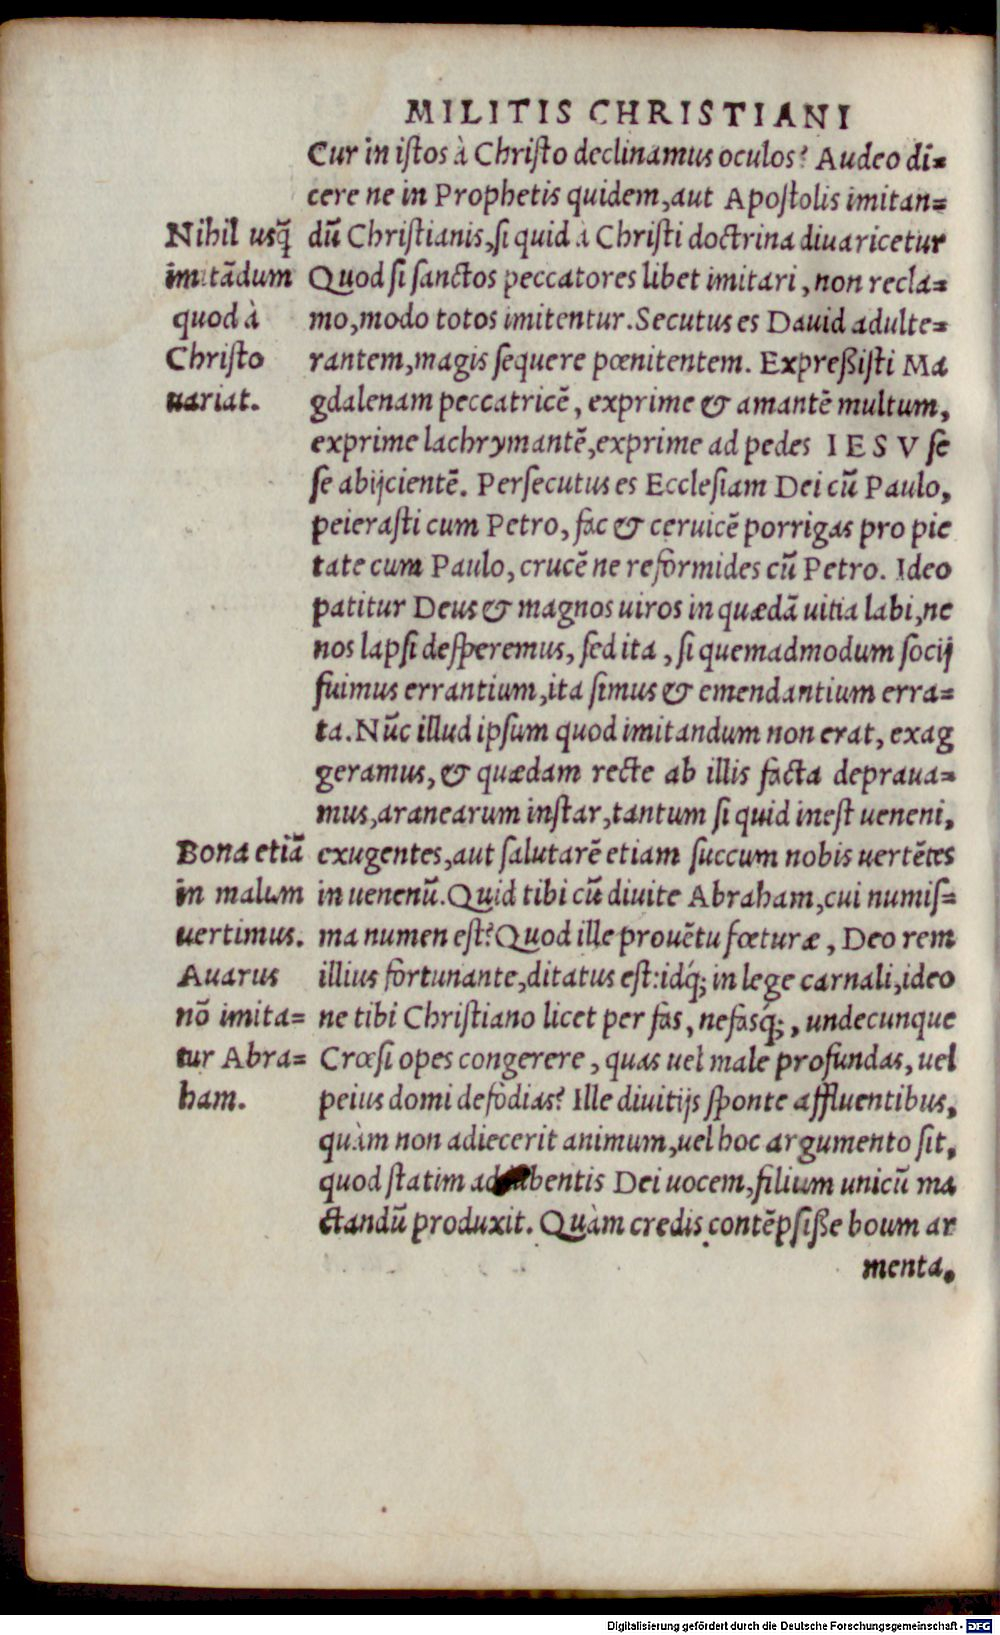 MILITIS CHRISTIANI
Cur in istos à Christo declinamus oculos? Audeo di=
cere ne in Prophetis quidem, aut Apostolis imitan=
dū Christianis, si quid à Christi doctrina diuaricetur
Quod si sanctos peccatores libet imitari, non recla=
mo, modo totos imitentur. Secutus es Dauid adulte=
rantem, magis sequere pœnitentem. Expreßisti Ma
gdalenam peccatricē, exprime & amantē multum,
exprime lachrymantē, exprime ad pedes IESV se
se abijcientē. Persecutus es Ecclesiam Dei cū Paulo,
peierasti cum Petro, fac & ceruicē porrigas pro pie
tate cum Paulo, crucē ne reformides cū Petro. Ideo
patitur Deus & magnos uiros in quædā uitia labi, ne
nos lapsi desperemus, sed ita, si quemadmodum socij
fuimus errantium, ita simus & emendantium erra=
ta. Nūc illud ipsum quod imitandum non erat, exag
geramus, & quædam recte ab illis facta depraua=
mus, aranearum instar, tantum si quid inest ueneni,
exugentes, aut salutarē etiam succum nobis uertētes
in uenenū. Quid tibi cū diuite Abraham, cui numis=
ma numen est? Quod ille prouētu fœturæ, Deo rem
illius fortunante, ditatus est: idq́; in lege carnali, ideo
ne tibi Christiano licet per fas, nefasq́;, undecunque
Crœsi opes congerere, quas uel male profundas, uel
peius domi defòdias? Ille diuitijs sponte affluentibus,
quàm non adiecerit animum, uel hoc argumento sit,
quod statim ad bentis Dei uocem, filium unicū ma
ctandū produxit. Quàm credis contēpsiße boum ar
menta,
Nihil usq̃
imitādum
quod à
Christo
uariat.
Bona etiā
in malum
uertimus.
Auarus
nō imita=
tur Abra=
ham.
Digitalisierung gefördert durch die Deutsche Forschungsgemeinschaft - DFG